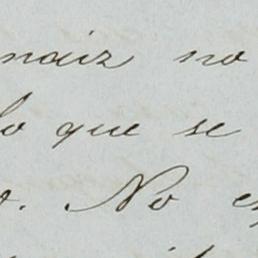 maiz no
que se
. No